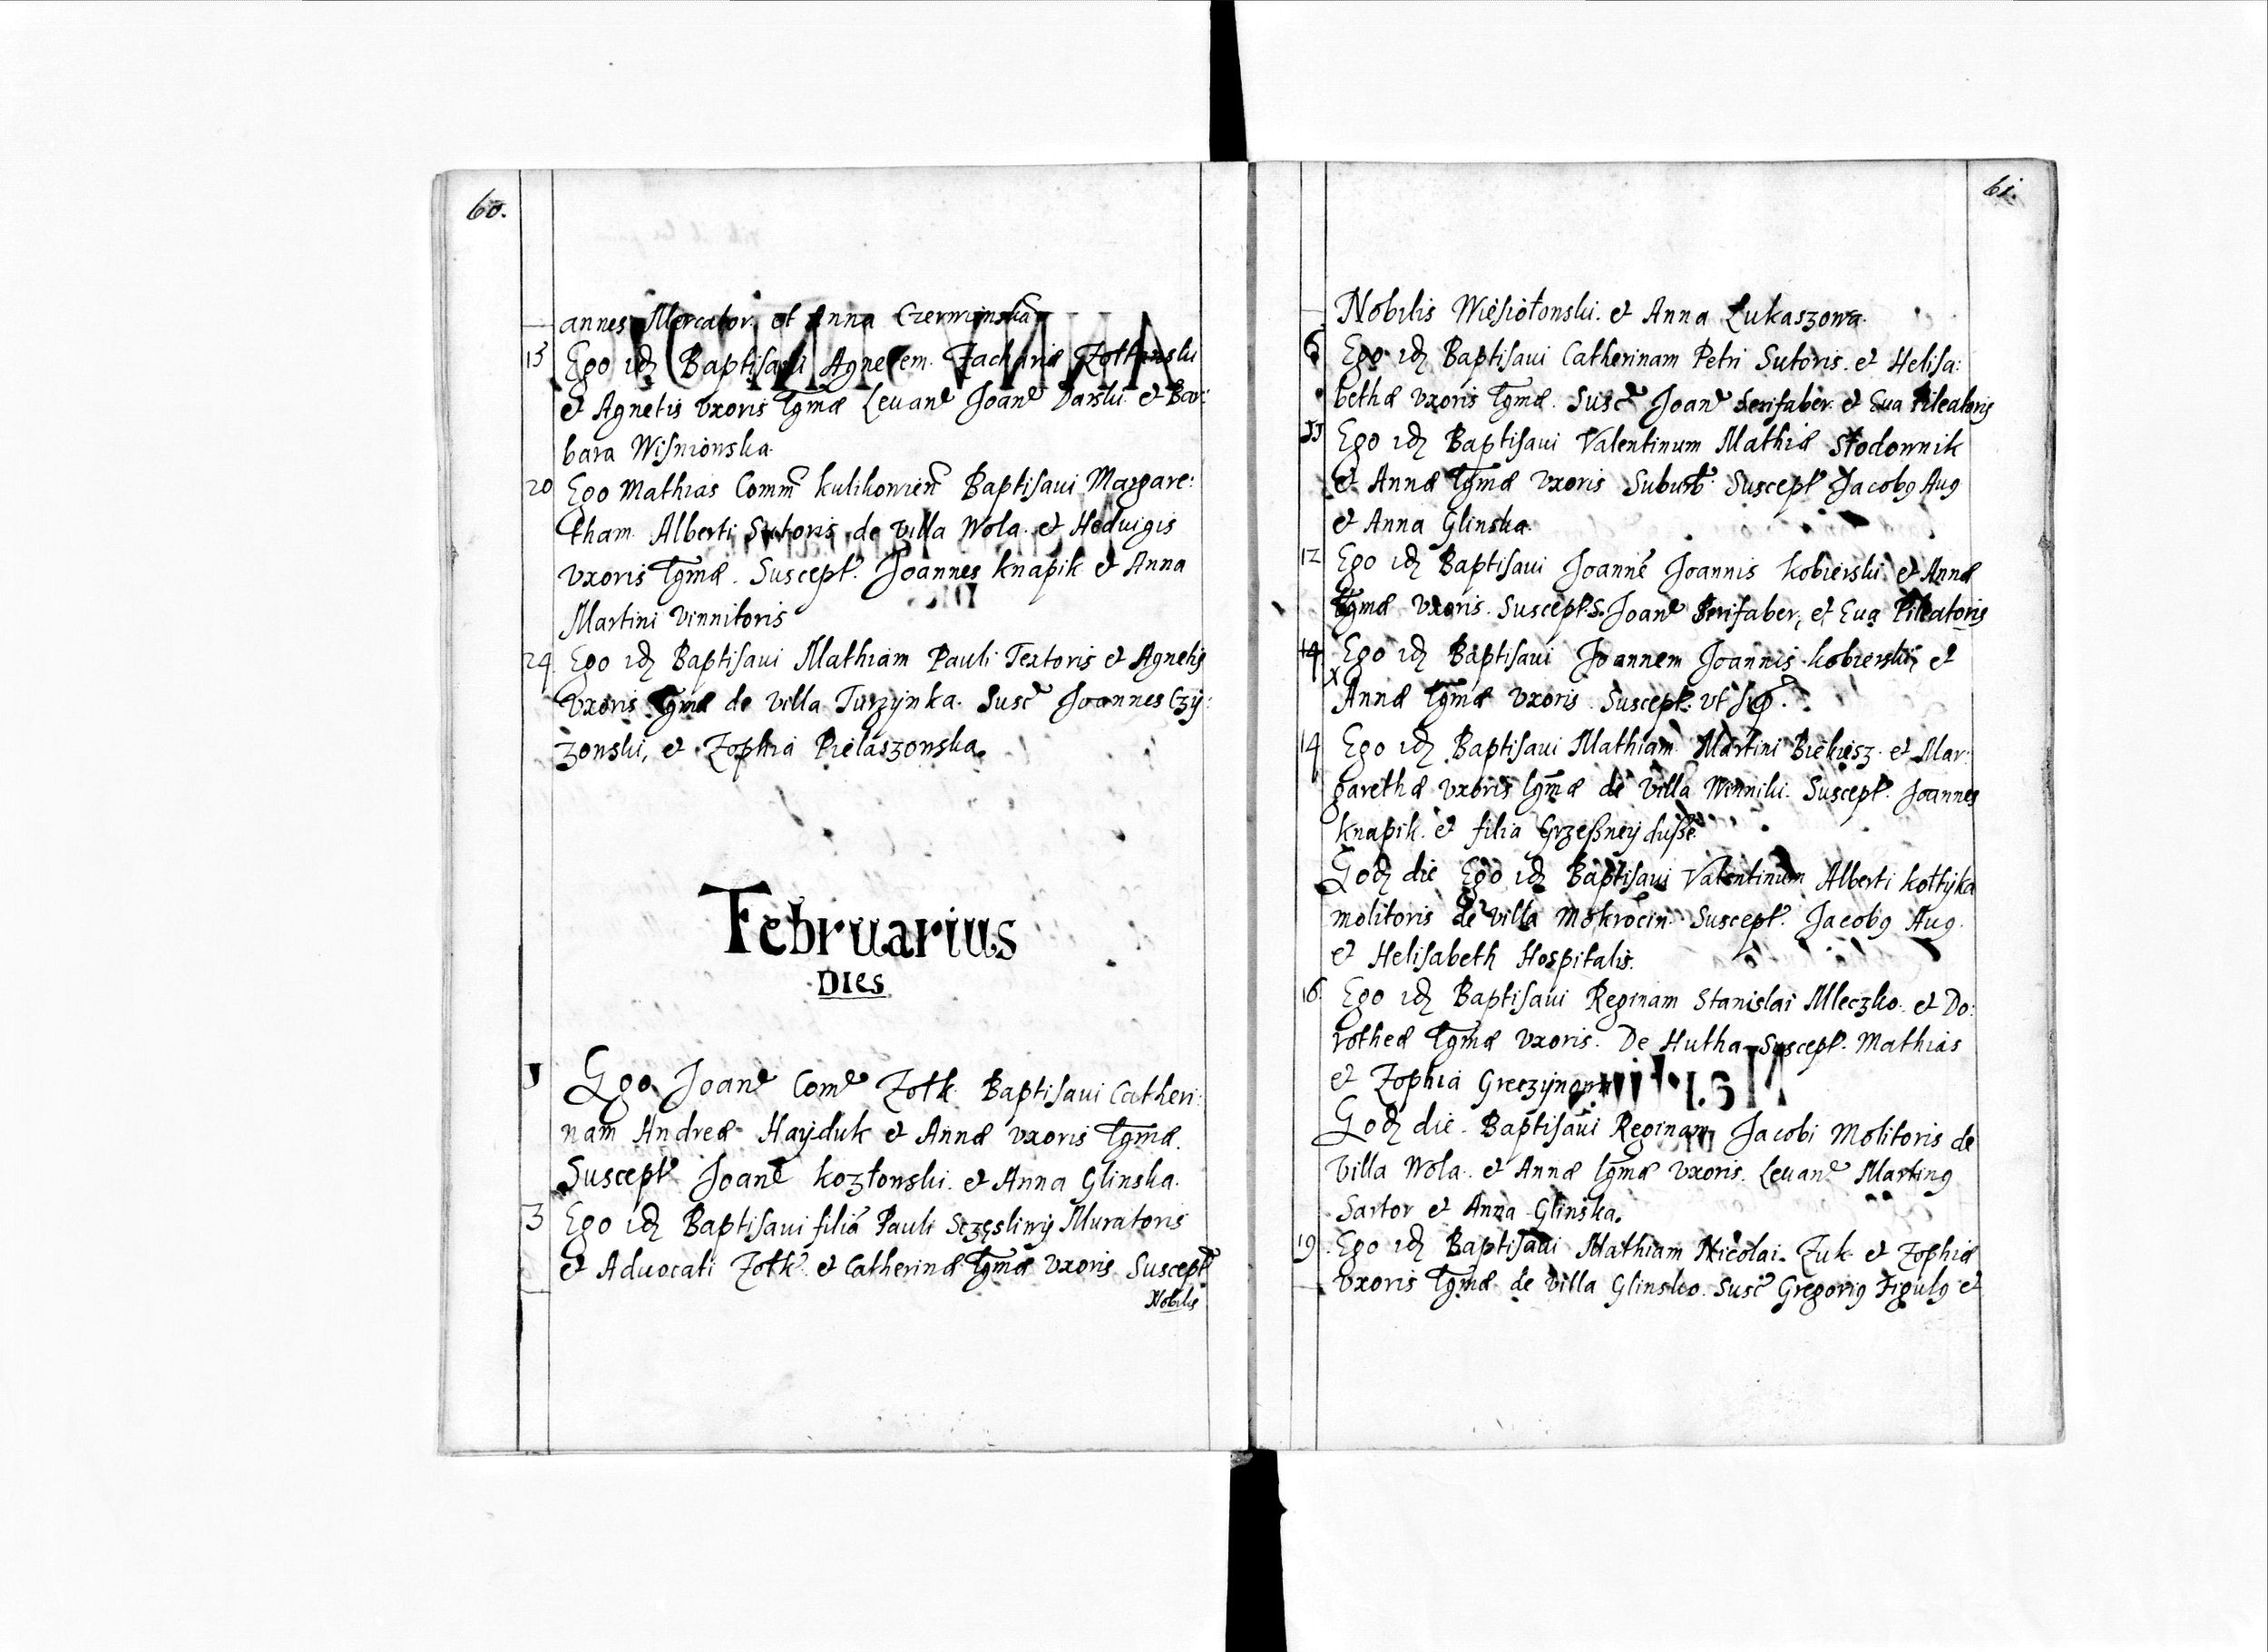 60.
annes Mercator. et Anna Czerminska
15 Ego idē Baptisaui Agnetem Zachariæ Żołkenski
et Agnetis vxoris lgmæ Leuanᵉ Joanᵉ Darski et Bar:
bara Wisnionska.
20 Ego Mathias Comm̃ kulikonień Baptisaui Margare:
tham Alberti Sutoris de villa Wola. et Heduigis
vxoris lgmæ. Suscept. Joannes knapik et Anna
Martini vinnitoris
24 Ego idē Baptisaui Mathiam Pauli Textoris et Agnetis
vxoris lgmæ de villa Turzynka. Suscᵉ Joannes Czy:
zonski, et Zophia Pielaszonska.
Februarius
Dies
1 Ego Joanᵉ Comᵉ Żołk. Baptisaui Catheri:
nam Andreæ Hayduk et Annæ vxoris lgmæ.
Susceptᵉ Joanᵉ kozłonski. et Anna Glinska.
3 Ego idē Baptisaui filiā Pauli Sczęsliwy Muratoris
et Aduocati Żołk. et Catherinæ lgmæ vxoris Susceptᵉ
Nobilis
61.
Nobilis Wiesiołonski. et Anna Lukaszowa.
6 Ego idē Baptisaui Catherinam Petri Sutoris. et Helisa:
bethæ vxoris lgmæ. Suscᵉ Joanᵉ Serifaber. et Eua Pileatoris
11 Ego idē Baptisaui Valentinum Mathiæ Słodownik
et Annæ lgmæ vxoris Suburb. Susceptᵉ Jacobꝰ Aug
et Anna Glinska.
12 Ego idē Baptisaui Joannē Joannis kobierski. et Annæ
lgmæ vxoris. Suscept. S. Joanᵉ Serifaber, et Eua Pileatoris
14 Ego idē Baptisaui Joannem Joannis kobierski, et
x Annæ lgmæ vxoris. Suscept. vt
14 Ego idē Baptisaui Mathiam Martini Biekiesz. et Mar:
garethæ vxoris lgmæ de villa Winniki. Suscept. Joannes
knapik. et filia Grzeßney dusse.
Eodē die Ego idē Baptisaui Valentinum Alberti kołtyka
molitoris de villa Mokrocin. Susceptᵉ. Jacobꝰ Aug.
et Helisabeth Hospitalis.
16 Ego idē Baptisaui Reginam Stanislai Mleczko. et Do:
rotheæ lgmæ vxoris. De Hutha Suscept. Mathias
et Zophia
Eodē die. Baptisaui Reginam Jacobi Molitoris de
villa Wola. et Annæ lgmæ vxoris. Leuanᵉ Martinꝰ
Sartor et Anna Glinska.
19 Ego idē Baptisaui Mathiam Nicolai Zuk et Zophiæ
vxoris lgmæ de villa Glinsko. Suscᵉ Gregoriꝰ Figulꝰ et